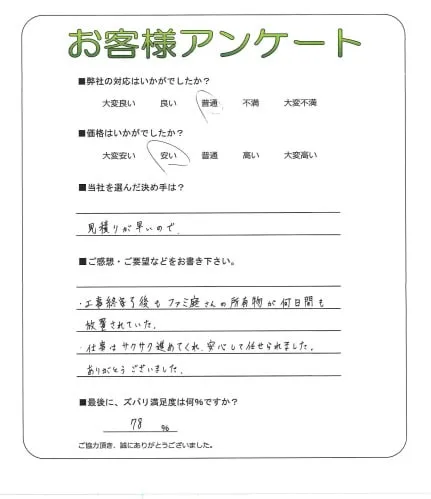 お客様アンケート
■弊社の対応はいかがでしたか？
大変良い 良い 普通 不満 大変不満
■価格はいかがでしたか？
大変安い 安い 普通 高い 大変高い
■当社を選んだ決め手は？
見積りが早いので。
■ご感想・ご要望などをお書き下さい。
・工事終了後も ファミ庭さんの所有物が何日間も
放置されていた。
・仕事はサクサク進めてくれ、安心して任せられました。
ありがとうございました。
■最後に、ズバリ満足度は何％ですか？
78 ％
ご協力頂き、誠にありがとうございました。